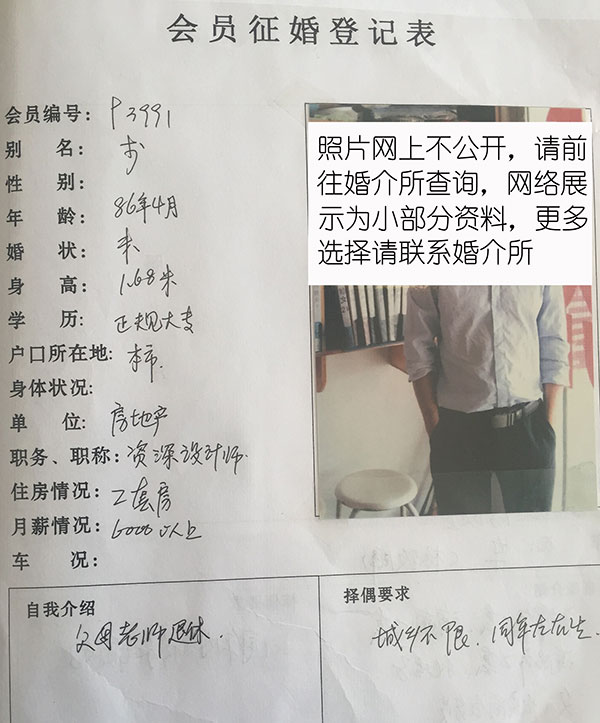 会员征婚登记表
会员编号: P3991
别 名:
性 别:
年 龄: 86年4月
婚 状: 未
身 高: 1.68米
学 历: 正规大专
户口所在地: 本市.
身体状况:
单 位: 房地产
职务、职称: 资深设计师.
住房情况: 2套房
月薪情况: 6000以上
车 况:
照片网上不公开，请前
往婚介所查询，网络展
示为小部分资料，更多
选择请联系婚介所
自我介绍
父母老师退休.
择偶要求
城乡不限. 同年左右生.